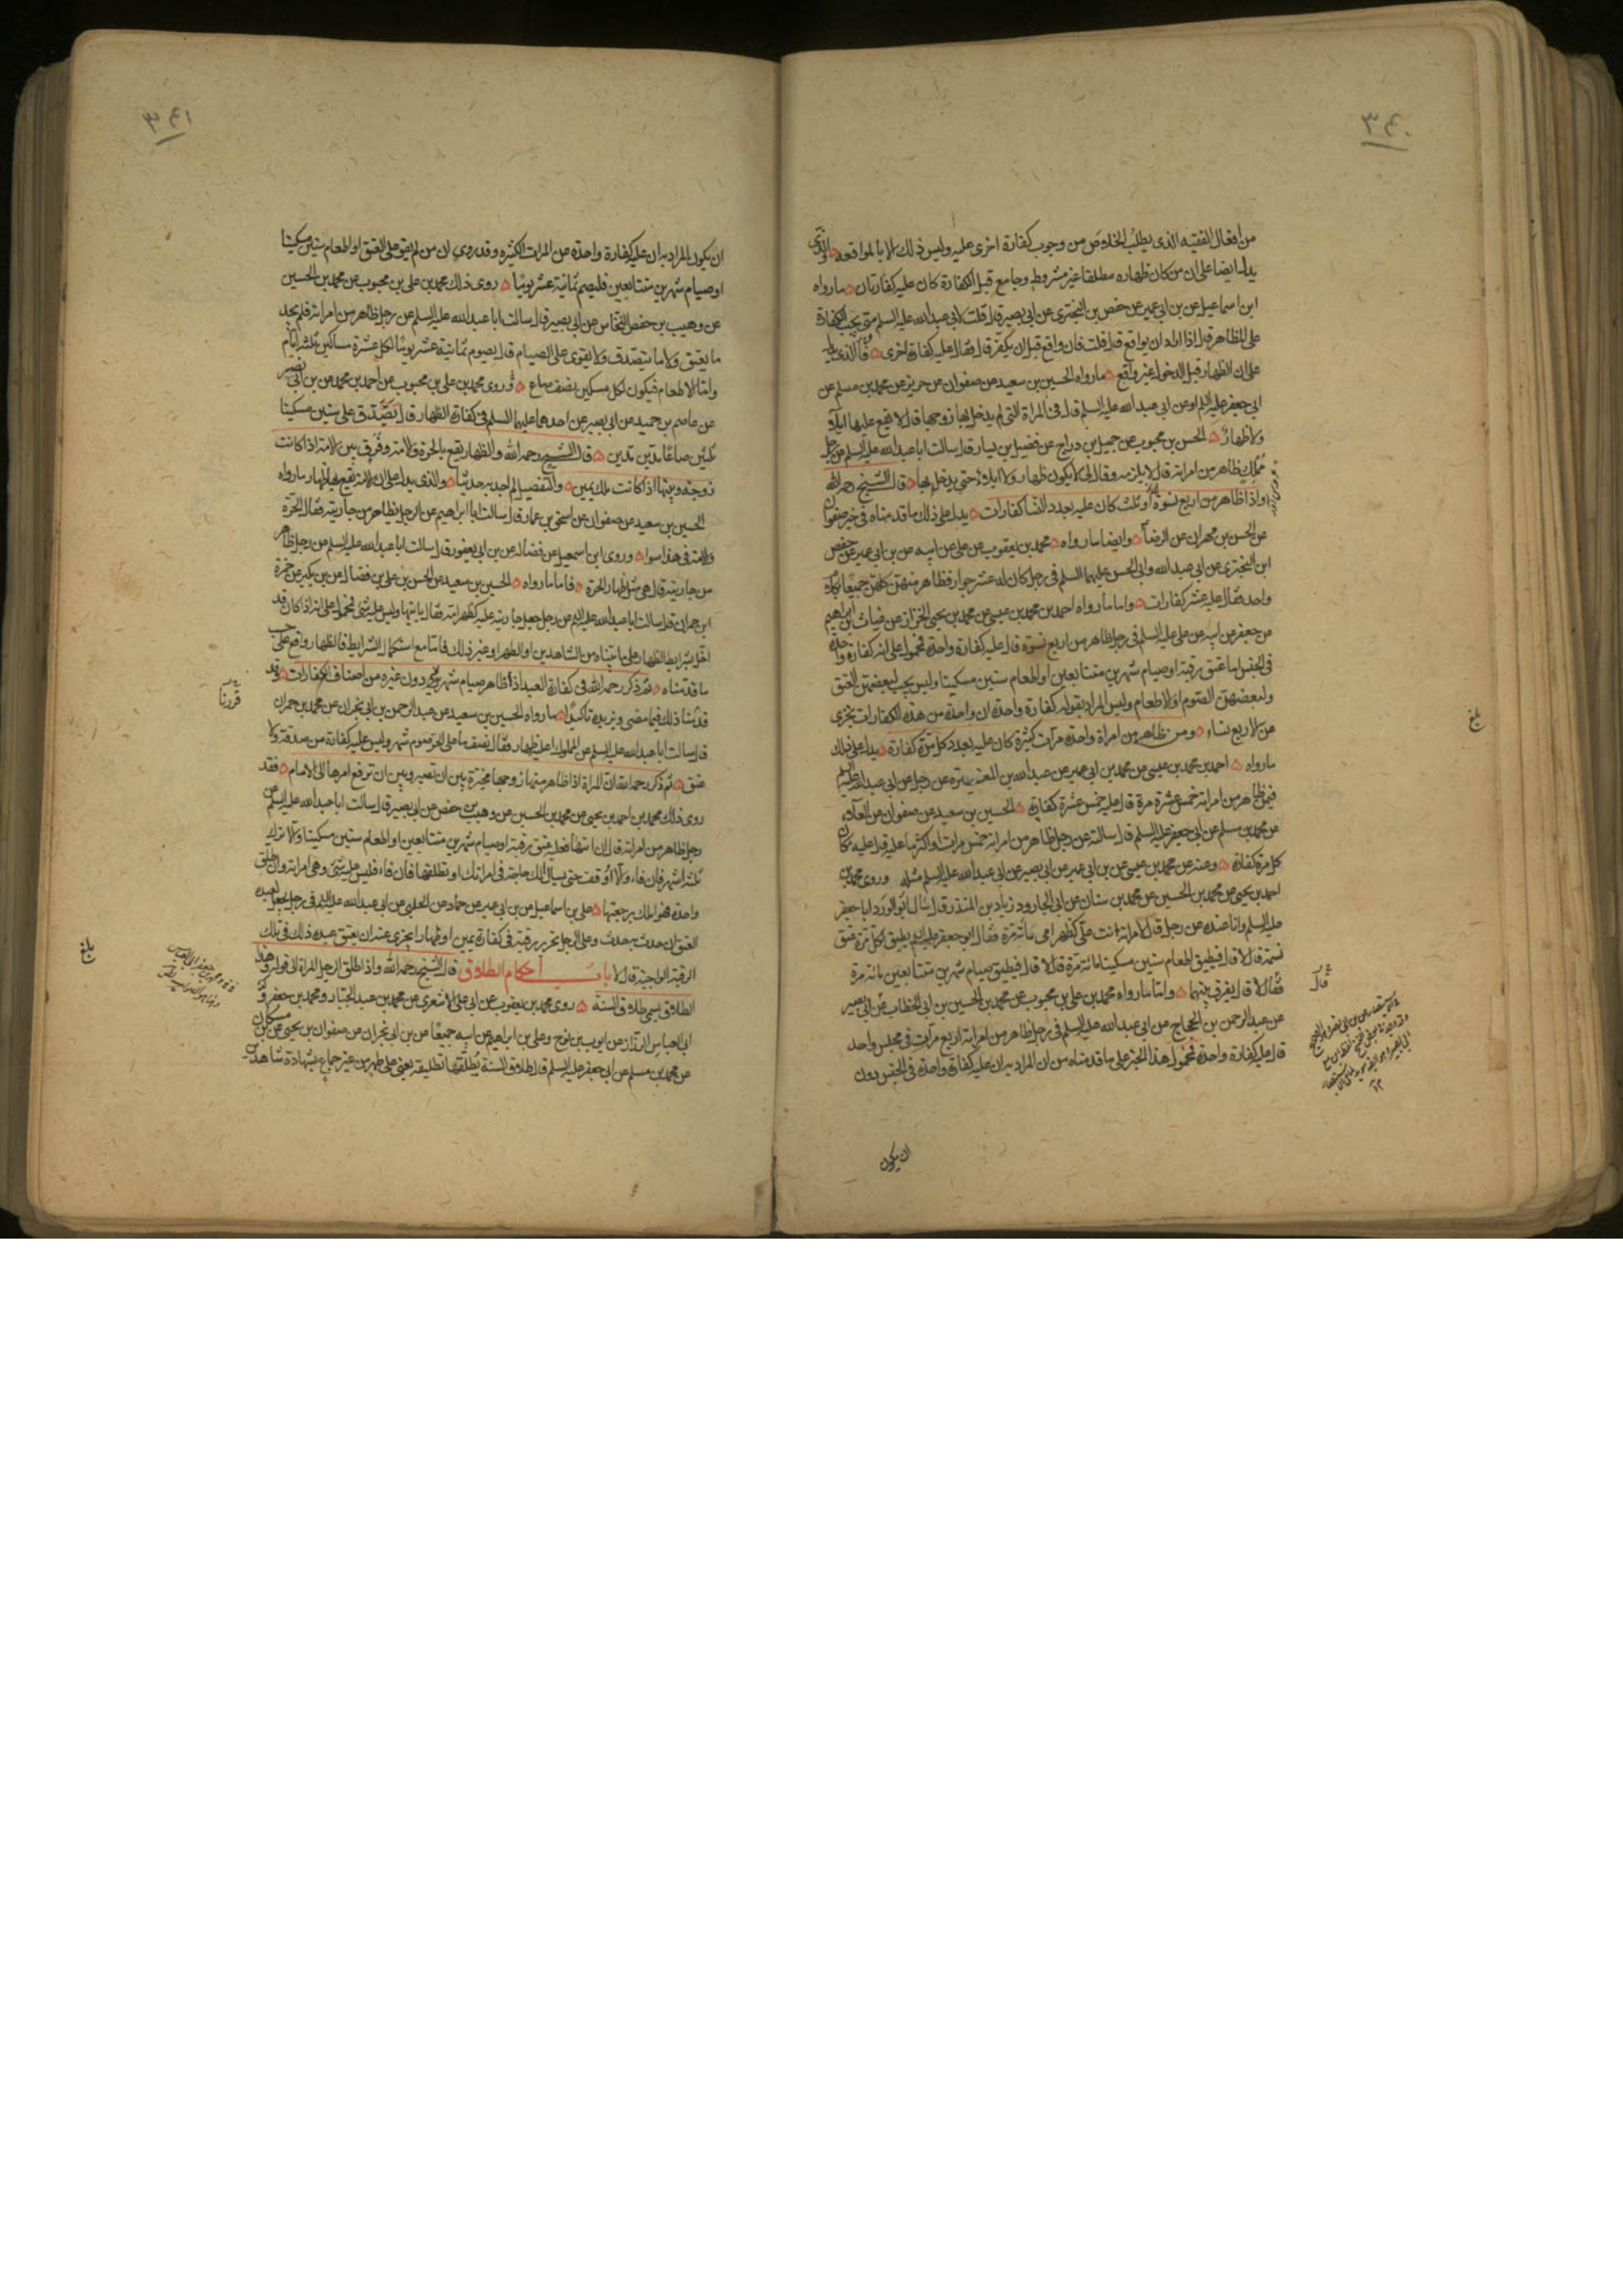 ٣٤٠
من افعال الفقيه الذى يطلب الخلاص من وجوب كفارة اخرى عليه وليس ذلك الا بالمواقعه والذى
يدل ايضا على ان من كان ظهاره مطلقا غير مشروط وجامع قبل الكفارة كان عليه كفارتان ما رواه
ابن اسماعيل عن بن ابى عمير عن حفص بن البخترى عن ابى بصير قال قلت لابى عبد الله عليه السلم متى يجب الكفارة
على المظاهر قال اذا اراد ان يواقع قال قلت فان واقع قبل ان يكفر قال فقال عليه كفارة اخرى فاما الذى يدل
على ان الظهار قبل الدخول غير واقع ما رواه الحسين بن سعيد عن صفوان عن حريز عن محمد بن مسلم عن
ابى جعفر عليه السلم او عن ابى عبد الله عليه السلم قال فى المراة التى لم يدخل بها زوجها قال لا يقع عليها ايلاء
ولا ظهار الحسن بن محبوب عن جميل بن دراج عن فضيل بن يسار قال سالت ابا عبد الله عليه السلم عن رجل
مملك ظاهر من امراته قال لا يلزمه وقال لى لا يكون ظهار ولا ايلاء حتى يدخل بها قال الشيخ رحمه الله
واذا ظاهر من اربع نسوة او ثلث كان عليه بعدد النسا كفارات يدل على ذلك ما قدمناه فى خبر صفوان
عن الحسن بن مهران عن الرضا وايضا ما رواه محمد بن يعقوب عن على عن ابيه عن بن ابى عمير عن حفص
ابن البخترى عن ابى عبد الله وابى الحسن عليهما السلم فى رجل كان له عشر جوار فظاهر منهن كلهن جميعا بكلام
واحد فقال عليه عشر كفارات واما ما رواه احمد بن محمد بن عيسى عن محمد بن يحيى الخزاز عن غياث بن ابراهيم
عن جعفر عن ابيه عن على عليه السلم فى رجل ظاهر من اربع نسوة قال عليه كفارة واحدة فمحمول على انه كفارة واحدة
فى الجنس اما عتق رقبة او صيام شهرين متتابعين او اطعام ستين مسكينا وليس يجب لبعضهن العتق
ولبعضهن الصوم او الاطعام وليس المراد بقوله كفارة واحدة ان واحدة من هذه الكفارات تجزى
عن الاربع نساء ومن ظاهر من امراة واحدة مرات كثيرة كان عليه بعدد كل مرة كفارة يدل على ذلك
ما رواه احمد بن محمد بن عيسى عن محمد بن ابى عمير عن عبد الله بن المغيرة عن رجل عن ابى عبد الله عليه السلم
فيمن ظاهر من امراته خمس عشرة مرة قال عليه خمس عشرة كفارة الحسين بن سعيد عن صفوان عن العلاء
عن محمد بن مسلم عن ابى جعفر عليه السلم قال سالته عن رجل ظاهر من امراته خمس مرات او اكثر ما عليه قال عليه مكان
كل مرة كفارة وعنه عن محمد بن عيسى عن بن ابى عمير عن ابى بصير عن ابى عبد الله عليه السلم مثله وروى محمد بن
احمد بن يحيى عن محمد بن الحسين عن محمد بن سنان عن ابى الجارود زياد بن المنذر قال سال ابو الورد ابا جعفر
عليه السلم وانا عنده عن رجل قال لامراته انت على كظهر امى مائة مرة فقال ابو جعفر عليه السلم يطيق لكل مرة عتق
نسمة قال لا قال فيطيق اطعام ستين مسكينا مائة مرة قال لا قال فيطيق صيام شهرين متتابعين مائة مرة
فقال لا قال يفرق بينهما واما ما رواه محمد بن على بن محبوب عن محمد بن الحسين بن ابى الخطاب عن ابى بصير
عن عبد الرحمن بن الحجاج عن ابى عبد الله عليه السلم فى رجل ظاهر من امراته اربع مرات فى مجلس واحد
قال عليه كفارة واحدة فمحمول هذا الخبر على ما قدمناه من ان المراد به ان عليه كفارة واحدة فى الجنس دون
ان يكون
بلغ
قال
٣٤١
ان يكون المراد به ان عليه كفارة واحدة عن المرات الكثيره وقد روى ان من لم يقو على العتق او اطعام ستين مسكينا
او صيام شهرين متتابعين فليصم ثمانية عشر يوما روى ذلك محمد بن على بن محبوب عن محمد بن الحسين
عن وهيب بن حفص النخاس عن ابى بصير قال سالت ابا عبد الله عليه السلم عن رجل ظاهر من امراته فلم يجد
ما يعتق ولا ما يتصدق ولا يقوى على الصيام قال يصوم ثمانية عشر يوما لكل عشرة مساكين ثلثة ايام
واما الاطعام فيكون لكل مسكين نصف صاع وروى محمد بن على بن محبوب عن احمد بن محمد عن بن ابى نصر
عن عاصم بن حميد عن ابى بصير عن احدهما عليهما السلم فى كفارة الظهار قال يتصدق على ستين مسكينا
ثلثين صاعا مدين مدين قال الشيخ رحمه الله والظهار يقع بالحرة والامة وفرق بين الامة اذا كانت
زوجة وبينها اذا كانت ملك يمين والتفصيل لم اجد به حديثا والذى يدل على ان الامة يقع بها الظهار ما رواه
الحسين بن سعيد عن صفوان عن اسحق بن عمار قال سالت ابا ابراهيم عن الرجل يظاهر من جاريته فقال الحرة
والامة فى هذا سوا وروى ابن اسمعيل عن فضالة عن بن ابى يعفور قال سالت ابا عبد الله عليه السلم عن رجل ظاهر
من جاريته قال هى مثل ظهار الحرة فاما ما رواه الحسين بن سعيد عن الحسن بن على بن فضال عن بن بكير عن حمزة
ابن حمران قال سالت ابا عبد الله عليه السلم عن رجل جعل جاريته عليه كظهر امه فقال ياتيها وليس عليه شى فمحمول على انه اذا كان قد
اخل بشرايط الظهار على ما بيناه من الشاهدين او الطهر او غير ذلك فاما مع استكمال الشرايط فالظهار واقع على حسب
ما قدمناه ثم ذكر رحمه الله فى كفارة العبد اذا ظاهر صيام شهر يكون دون غيره من اصناف الكفارات وقد
قدمنا ذلك فيما مضى ونزيده تاكيدا ما رواه الحسين بن سعيد عن عبد الرحمن بن ابى نجران عن محمد بن حمران
قال سالت ابا عبد الله عليه السلم عن المملوك اعليه ظهار فقال نصف ما على الحر صوم شهر وليس عليه كفارة من صدقة ولا
عتق ثم ذكر رحمه الله ان المراة اذا ظاهر منها زوجها مخيرة بين ان تصير وبين ان ترفع امرها الى الامام فقد
روى ذلك محمد بن احمد بن يحيى عن محمد بن الحسين عن وهيب بن حفص عن ابى بصير قال سالت ابا عبد الله عليه السلم عن
رجل ظاهر من امراته قال ان اتاها فعليه عتق رقبة او صيام شهرين متتابعين او اطعام ستين مسكينا والا ترك
ثلثة اشهر فان فاء والا اوقفت حتى يسال الك حاجة فى امراتك او تطلقها فان فاء فليس عليه شى وهى امراته وان طلق
واحدة فهو املك برجعتها على بن اسماعيل عن بن ابى عمير عن حماد عن الحلبى عن ابى عبد الله عليه السلم فى رجل يجعل لعبده
العتق ان حدث به حدث وعلى الرجل تحرير رقبة فى كفارة يمين او ظهار ايجزى عنه ان يعتق عبده ذلك فى تلك
الرقبة الواجبة قال لا باب احكام الطلاق قال الشيخ رحمه الله واذا طلق الرجل المراة الى قوله وهذا
الطلاق يسمى طلاق السنة روى محمد بن يعقوب عن ابى على الاشعرى عن محمد بن عبد الجبار ومحمد بن جعفر
ابى العباس الرزاز عن ايوب بن نوح وعلى بن ابراهيم عن ابيه جميعا عن بن ابى نجران عن صفوان بن يحيى عن بن مسكان
عن محمد بن مسلم عن ابى جعفر عليه السلم قال طلاق السنة يطلقها تطليقة يعنى على طهر من غير جماع بشهادة شاهدين
قررنا
بلغ